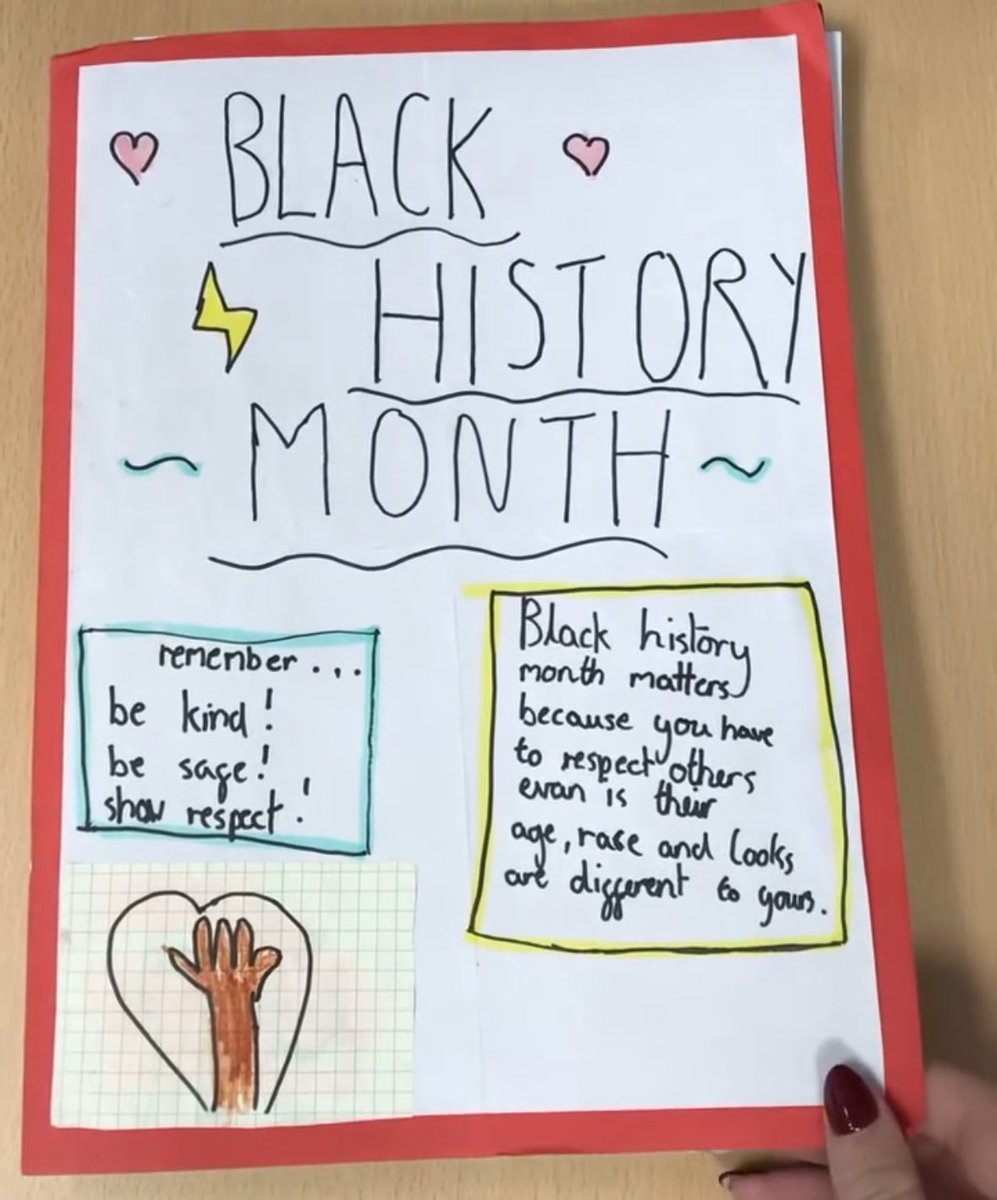 BLACK
HISTORY
MONTH
remenber...
be kind!
be sage!
show respect!
Black history
month matters
because you have
to respect others
evan is their
age, rase and looks
are different to yours.